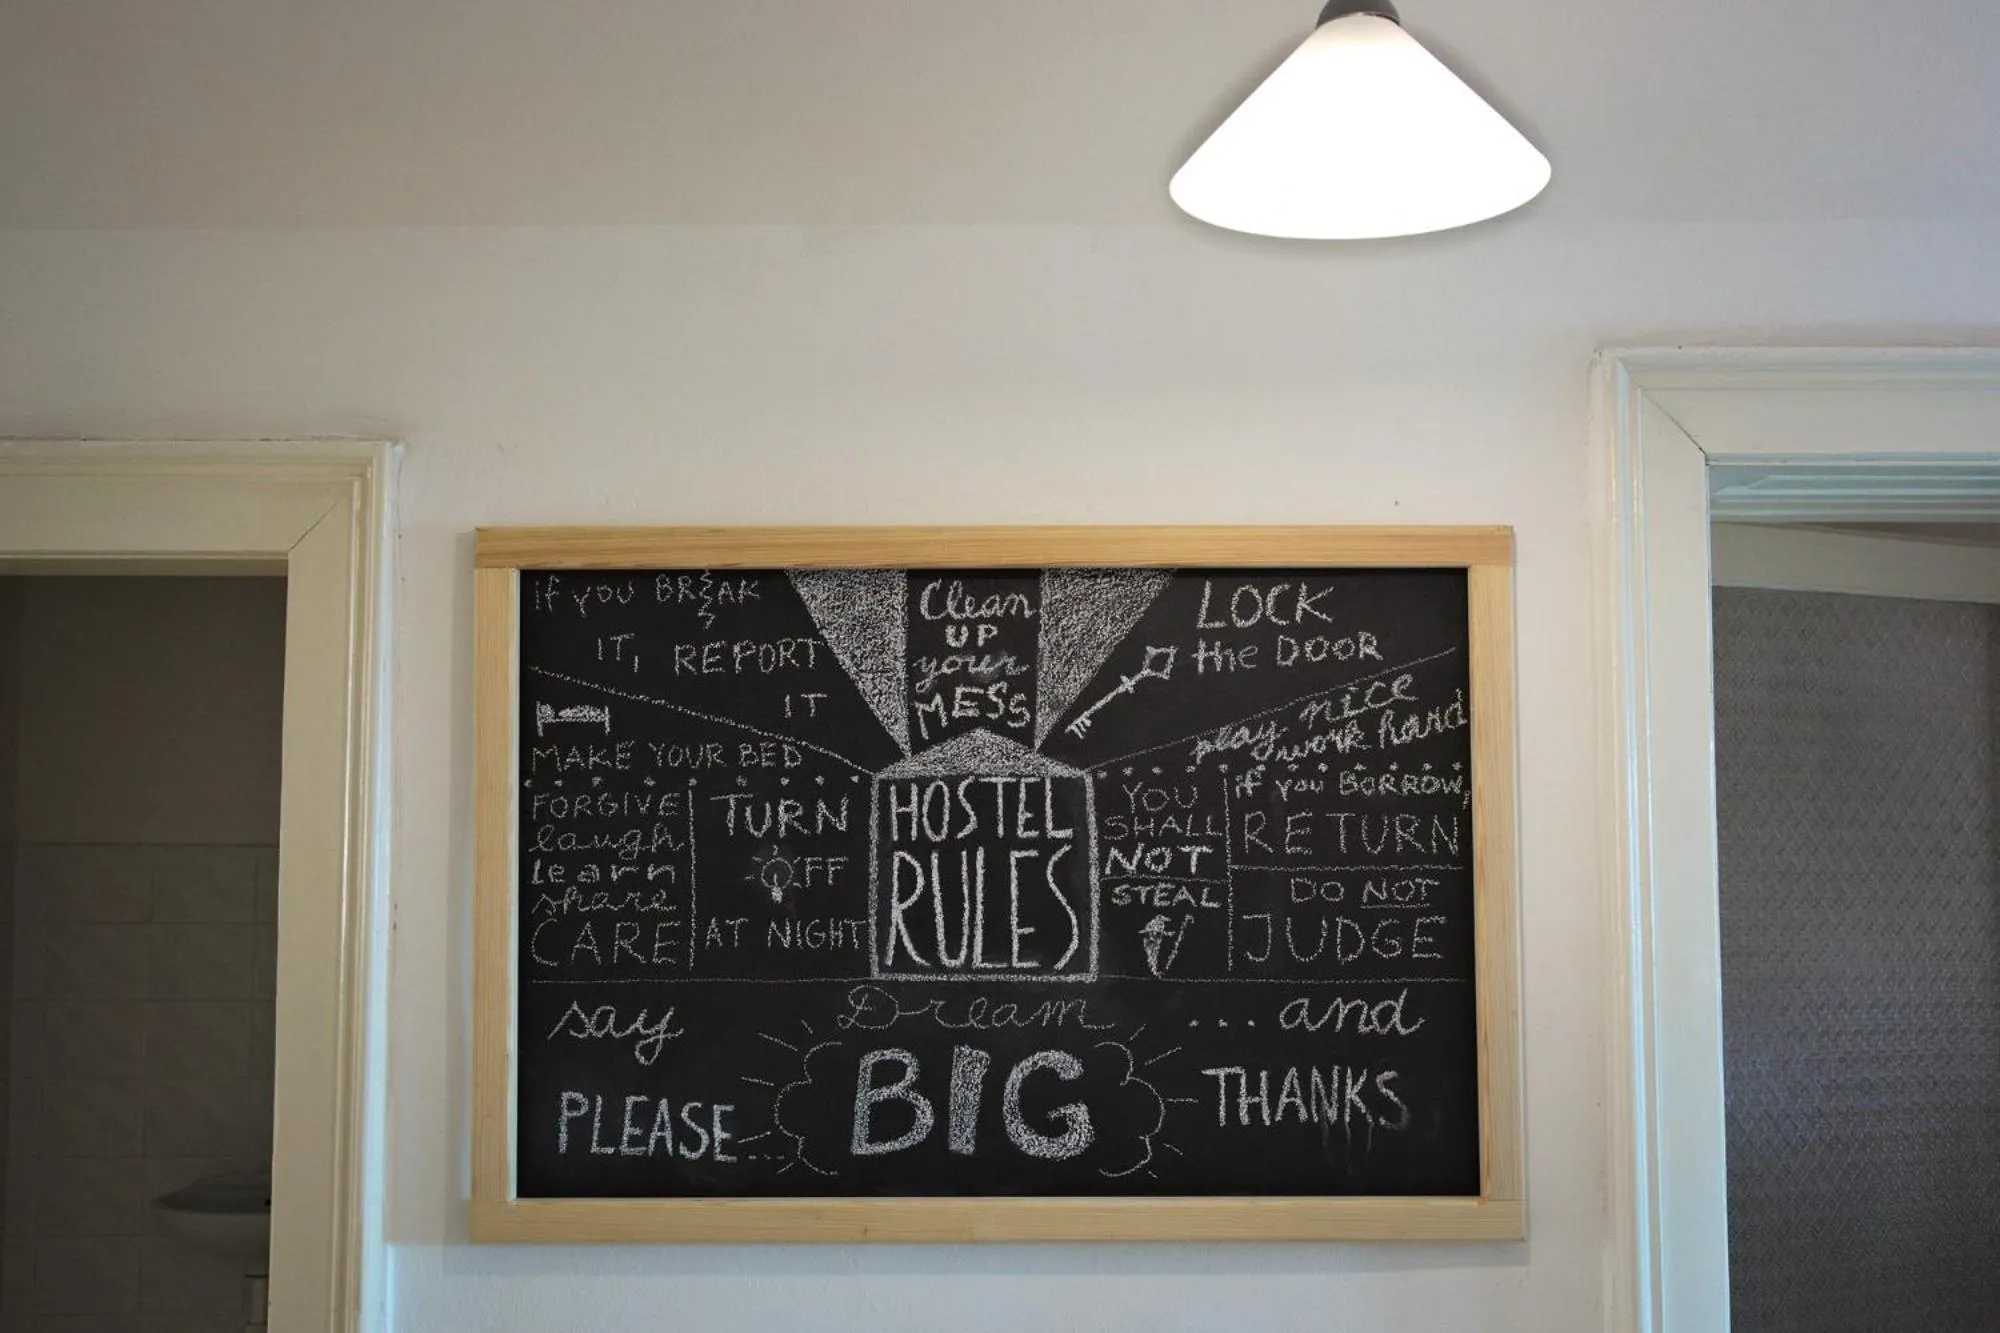 if you BREAK
IT, REPORT
IT
Clean
UP
your
MESS
LOCK
the DOOR
MAKE YOUR BED
play nice
work hard
FORGIVE
laugh
learn
share
CARE
TURN
OFF
AT NIGHT
HOSTEL
RULES
YOU
SHALL
NOT
STEAL
if you BORROW,
RETURN
DO NOT
JUDGE
say
PLEASE...
Dream
BIG
... and
THANKS